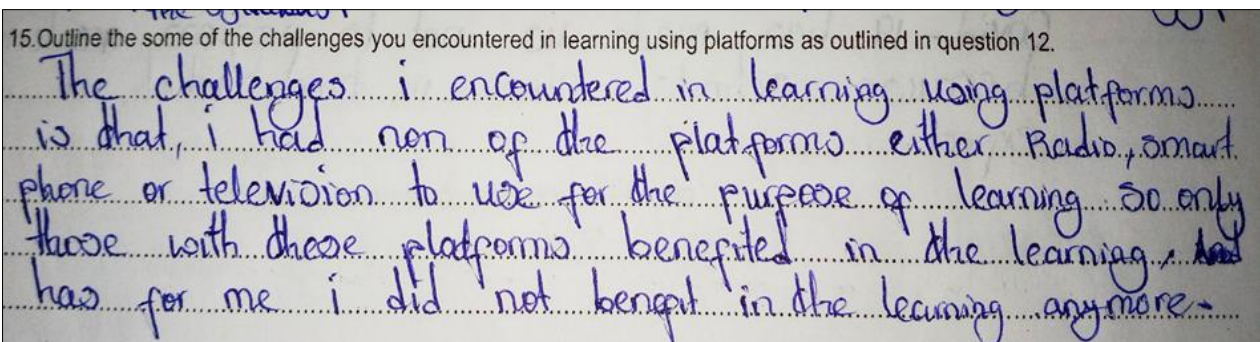 15.Outline the some of the challenges you encountered in learning using platforms as outlined in question 12.
The challenges i encountered in learning using platforms
is that, i had non of the platforms either Radio, smart
phone or television to use for the purpose of learning so only
those with these platforms benefited in the learning,
has for me i did not benefit in the learning anymore.